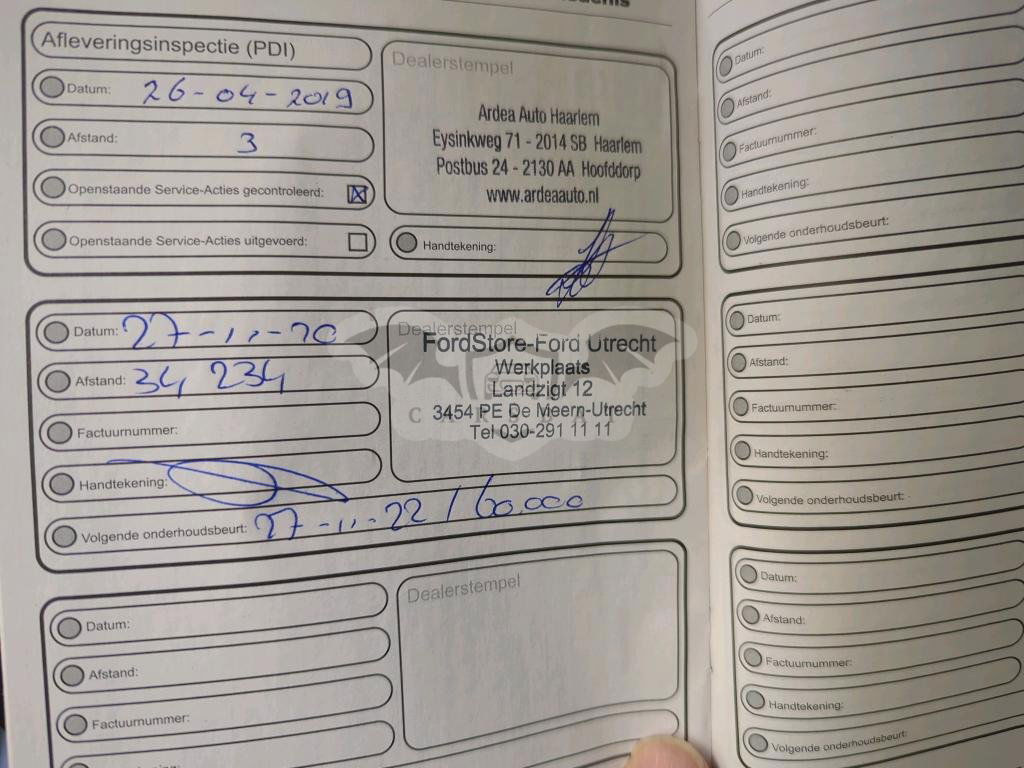 Afleveringsinspectie (PDI)
Datum: 26-04-2019
Afstand: 3
Openstaande Service-Acties gecontroleerd:
Openstaande Service-Acties uitgevoerd:
Dealerstempel
Ardea Auto Haarlem
Eysinkweg 71 - 2014 SB Haarlem
Postbus 24 - 2130 AA Hoofddorp
www.ardeaauto.nl
Handtekening:
Datum: 27-11-20
Afstand: 34 234
Factuurnummer:
Handtekening:
Volgende onderhoudsbeurt: 27-11-22 / 60.000
Dealerstempel
FordStore-Ford Utrecht
Werkplaats
Landzigt 12
3454 PE De Meern-Utrecht
Tel 030-291 11 11
Datum:
Afstand:
Factuurnummer:
Dealerstempel
Datum:
Afstand:
Factuurnummer:
Handtekening:
Volgende onderhoudsbeurt:
Datum:
Afstand:
Factuurnummer:
Handtekening:
Volgende onderhoudsbeurt:
Datum:
Afstand:
Factuurnummer:
Handtekening:
Volgende onderhoudsbeurt: